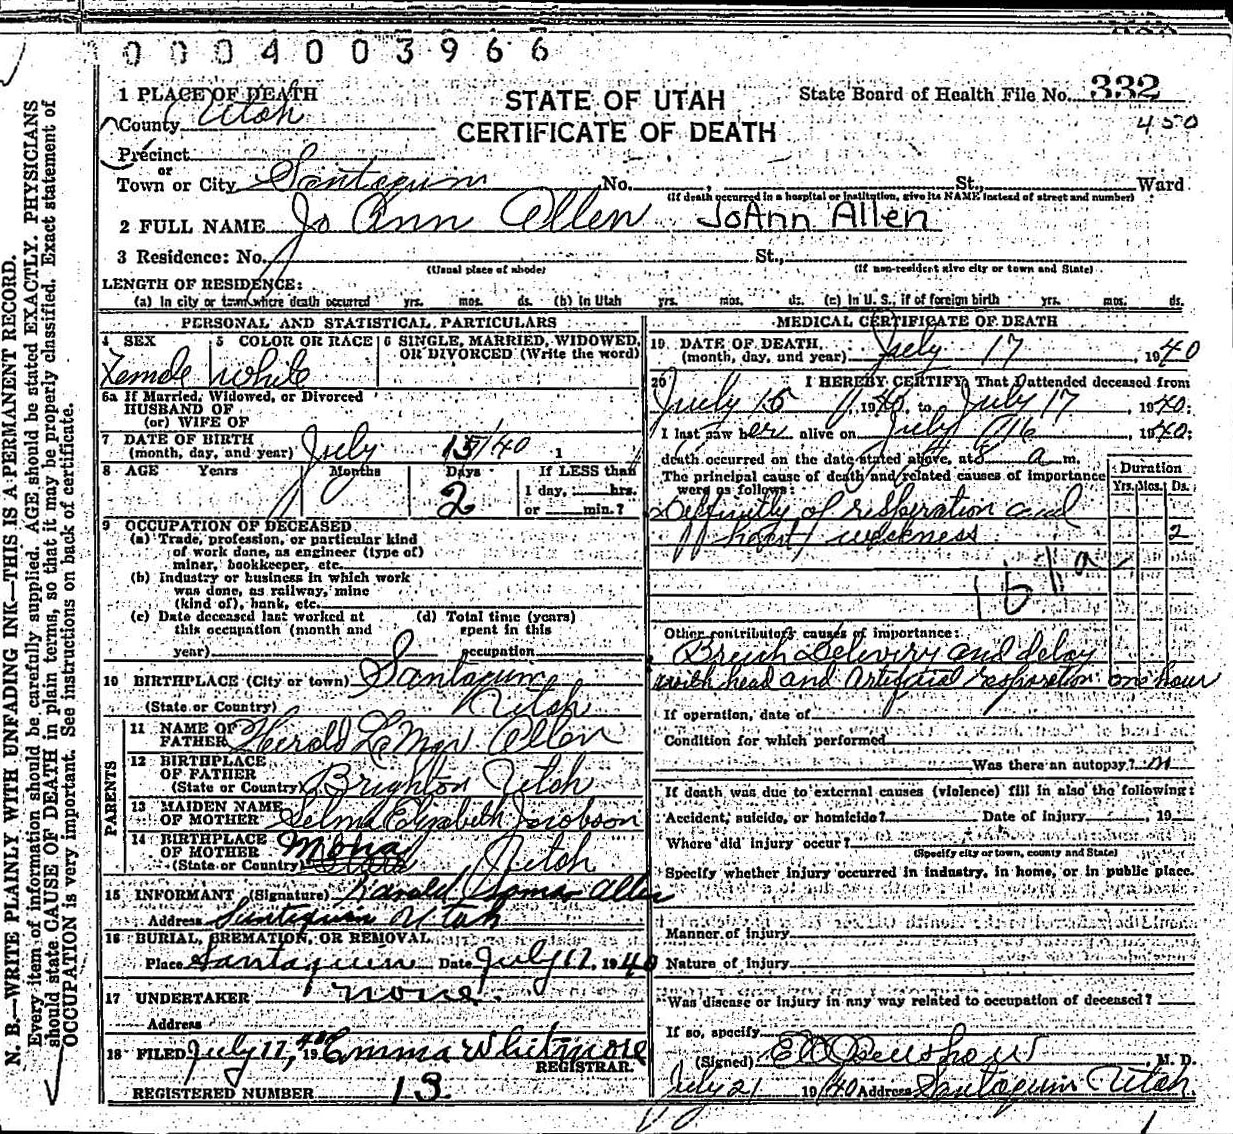 0004003966
1 PLACE OF DEATH
STATE OF UTAH
State Board of Health File No. 332
County Utah
CERTIFICATE OF DEATH
450
Precinct
or
Town or City Santaquin No. , St., Ward
(If death occurred in a hospital or institution, give its NAME instead of street and number)
2 FULL NAME Jo Ann Allen JoAnn Allen
3 Residence: No. St.,
(Usual place of abode) (If non-resident give city or town and State)
LENGTH OF RESIDENCE:
(a) In city or town where death occurred yrs. mos. ds. (b) In Utah yrs. mos. ds. (c) In U. S., if of foreign birth yrs. mos. ds.
PERSONAL AND STATISTICAL PARTICULARS
4 SEX 5 COLOR OR RACE 6 SINGLE, MARRIED, WIDOWED,
OR DIVORCED (Write the word)
Female White
6a If Married, Widowed, or Divorced
HUSBAND OF
(or) WIFE OF
7 DATE OF BIRTH
(month, day, and year) July 15/40 1
8 AGE Years Months Days If LESS than
2 1 day, hrs.
or min.?
9 OCCUPATION OF DECEASED
(a) Trade, profession, or particular kind
of work done, as engineer (type of)
miner, bookkeeper, etc.
(b) Industry or business in which work
was done, as railway, mine
(kind of), bank, etc.
(c) Date deceased last worked at (d) Total time (years)
this occupation (month and spent in this
year) occupation
10 BIRTHPLACE (City or town) Santaquin
(State or Country) Utah
PARENTS
11 NAME OF
FATHER Herold LaMar Allen
12 BIRTHPLACE
OF FATHER
(State or Country) Brighton Utah
13 MAIDEN NAME
OF MOTHER Selma Elizabeth Jacobson
14 BIRTHPLACE Mona
OF MOTHER
(State or Country) Utah
15 INFORMANT (Signature) Harold Lamar Allen
Address Santaquin Utah
16 BURIAL, CREMATION, OR REMOVAL
Place Santaquin Date July 17, 1940
17 UNDERTAKER none.
Address
18 FILED July 17, 1940 Emma Whitmore
REGISTRAR.
REGISTERED NUMBER 13
MEDICAL CERTIFICATE OF DEATH
19 DATE OF DEATH
(month, day, and year) July 17, 1940
20 I HEREBY CERTIFY, That I attended deceased from
July 15, 1940, to July 17, 1940;
I last saw her alive on July 16, 1940;
death occurred on the date stated above, at 8 a m.
The principal cause of death and related causes of importance
were as follows:
Duration
Yrs. Mos. Ds.
of respiration and
heart weakness 2
161a
Other contributory causes of importance:
Breich Delivery and delay
with head and Artificial respiration one hour
If operation, date of
Condition for which performed
Was there an autopsy?
If death was due to external causes (violence) fill in also the following:
Accident, suicide, or homicide? Date of Injury , 19
Where did injury occur?
(Specify city or town, county and State)
Specify whether injury occurred in industry, in home, or in public place.
Manner of injury
Nature of injury
Was disease or injury in any way related to occupation of deceased?
If so, specify
(Signed) , M. D.
July 21 1940 Address Santaquin Utah
N. B.—WRITE PLAINLY WITH UNFADING INK—THIS IS A PERMANENT RECORD.
Every item of information should be carefully supplied. AGE should be stated EXACTLY. PHYSICIANS
should state CAUSE OF DEATH in plain terms, so that it may be properly classified. Exact statement of
OCCUPATION is very important. See instructions on back of certificate.